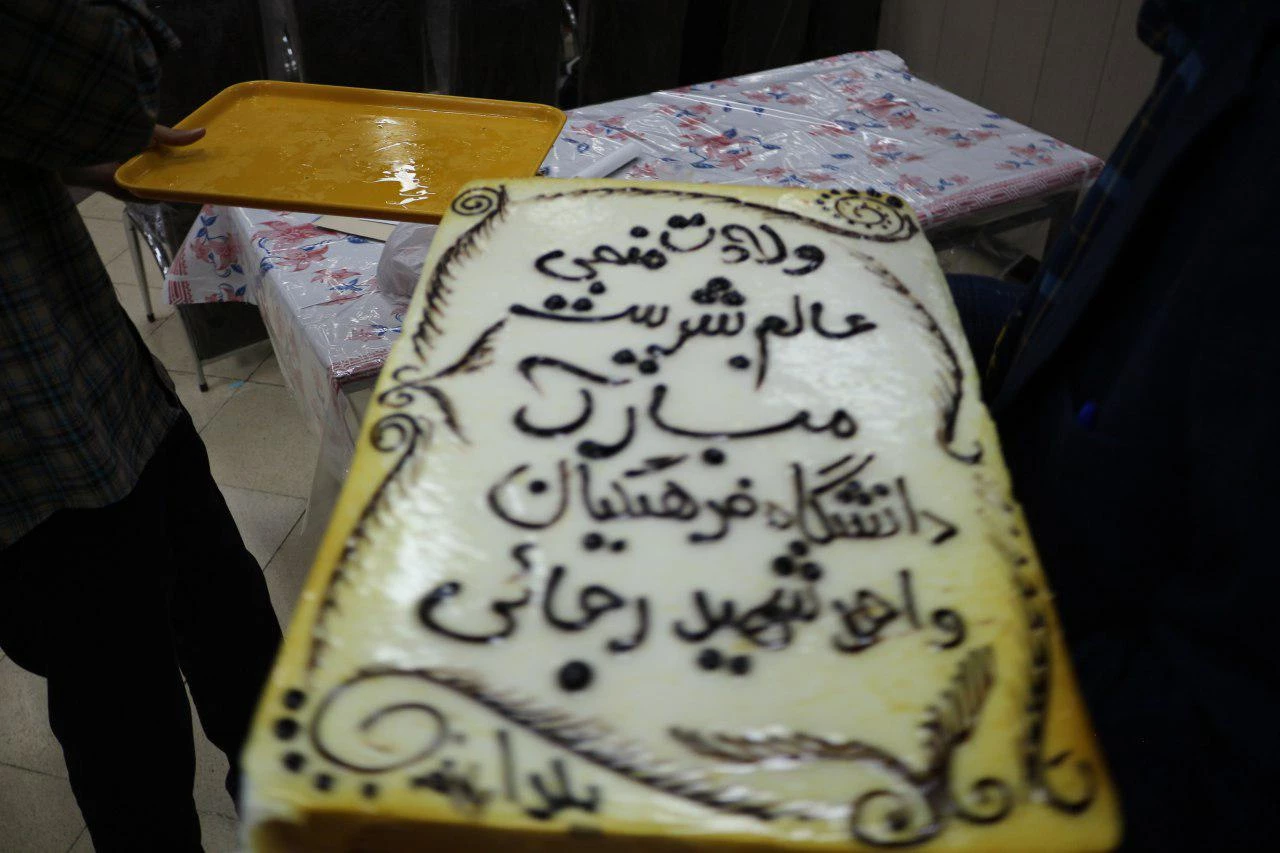 ولادت منجی
عالم بشریت
مبارک
دانشگاه فرهنگیان
واحد شهید رجائی